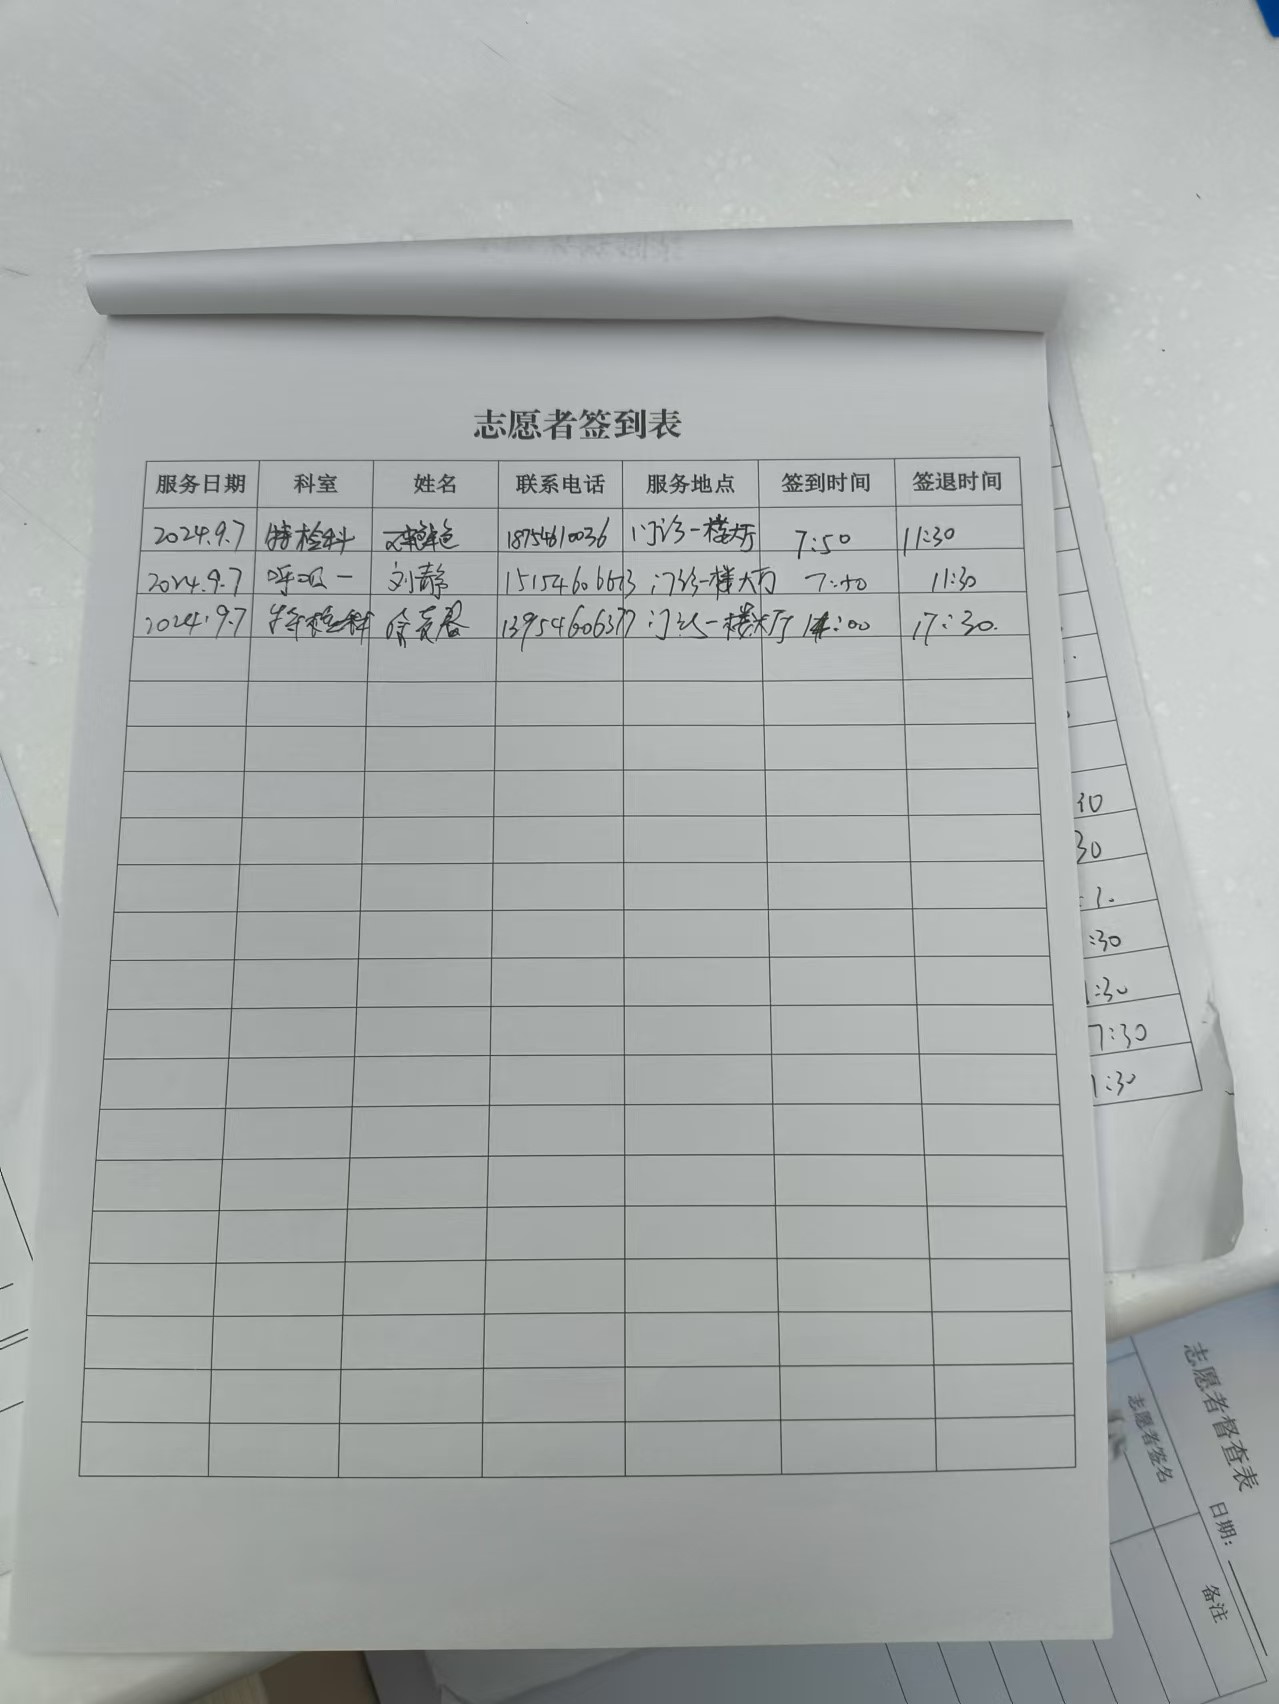 志愿者签到表
服务日期 科室 姓名 联系电话 服务地点 签到时间 签退时间
2024.9.7 特检科 18754610036 门诊一楼大厅 7:50 11:30
2024.9.7 呼吸一 刘静 15154606673 门诊一楼大厅 7:50 11:30
2024.9.7 特检科 13954606377 门诊一楼大厅 14:00 17:30.
30
30
:30
1:30
7:30
1:30
志愿者督查表
日期:
志愿者签名 备注